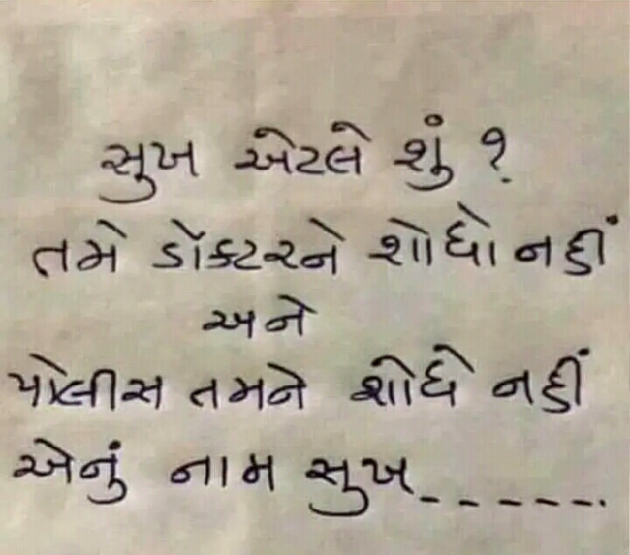 સુખ એટલે શું ?
તમે ડૉક્ટરને શોધો નહીં
અને
પોલીસ તમને શોધે નહીં
એનું નામ સુખ------.